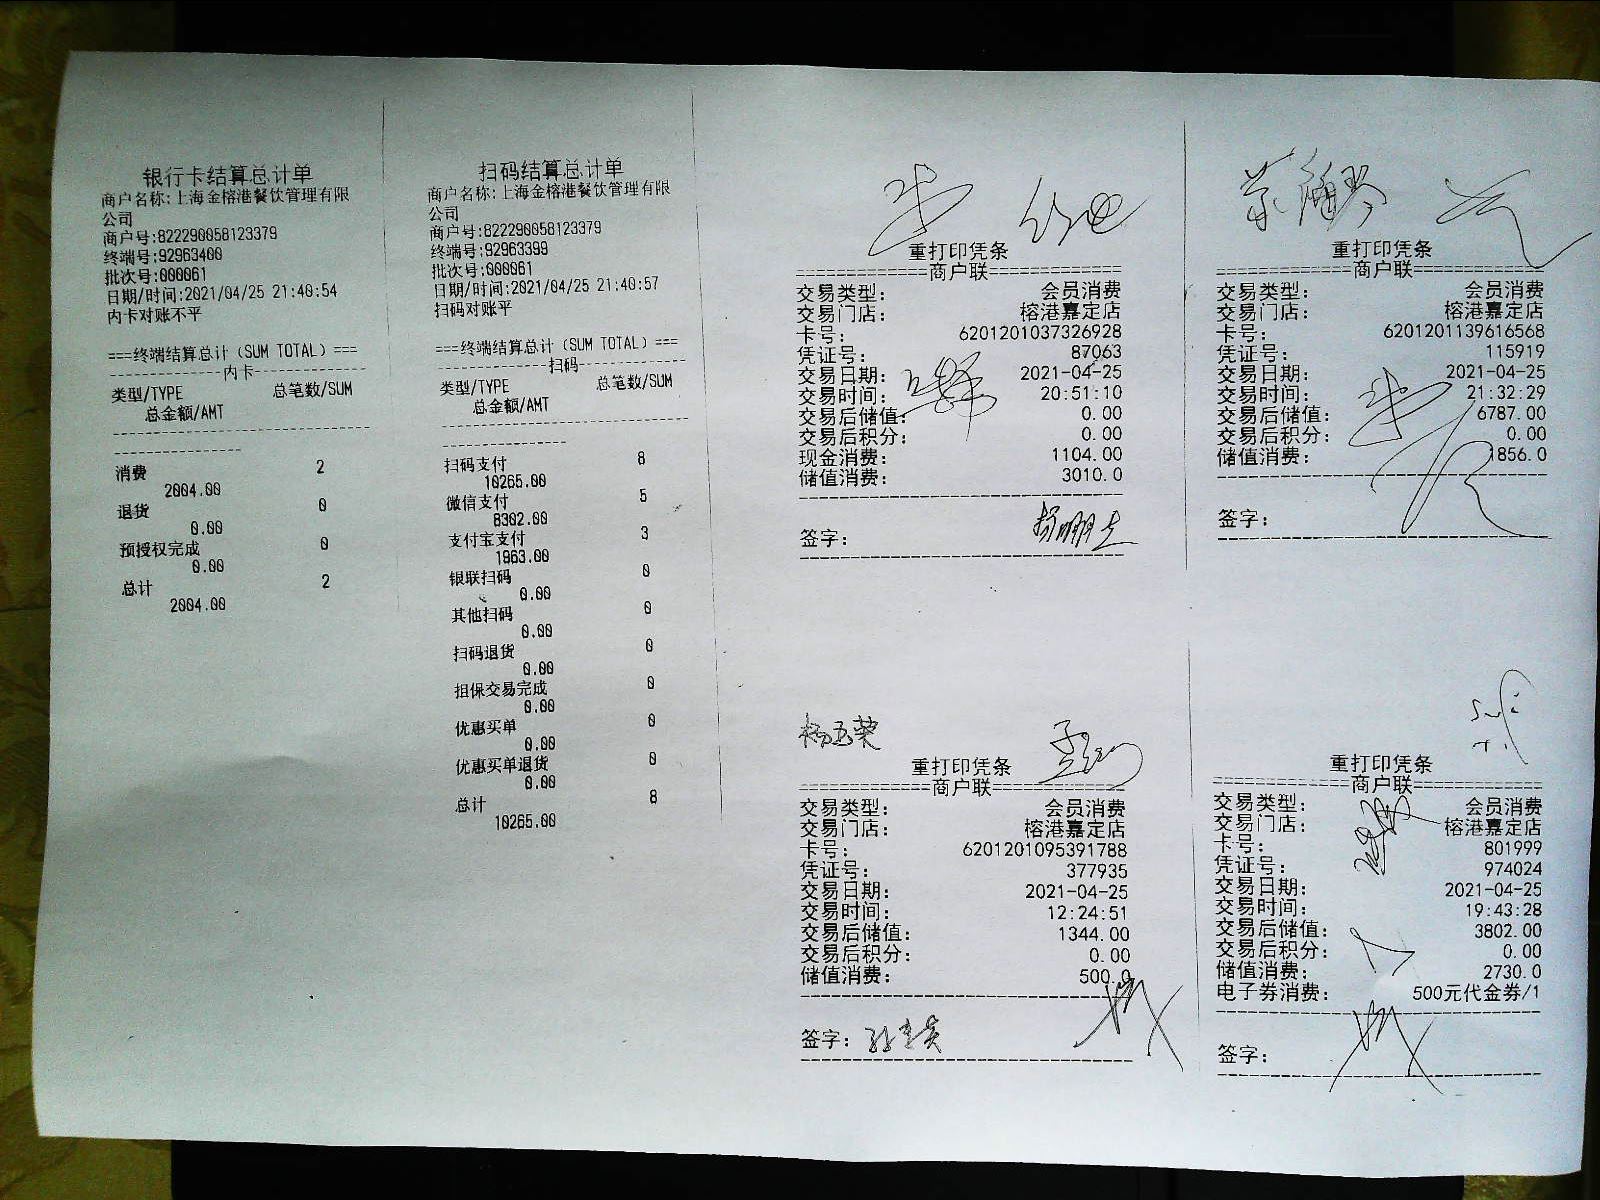 银行卡结算总计单
商户名称:上海金榕港餐饮管理有限
公司
商户号:822290058123379
终端号:92963400
批次号:000061
日期/时间:2021/04/25 21:40:54
内卡对账不平
===终端结算总计（SUM TOTAL）===
----------------内卡----------------
类型/TYPE 总笔数/SUM
总金额/AMT
消费 2
2004.00
退货 0
0.00
预授权完成 0
0.00
总计 2
2004.00
扫码结算总计单
商户名称:上海金榕港餐饮管理有限
公司
商户号:822290058123379
终端号:92963399
批次号:000061
日期/时间:2021/04/25 21:40:57
扫码对账平
===终端结算总计（SUM TOTAL）===
----------------扫码----------------
类型/TYPE 总笔数/SUM
总金额/AMT
扫码支付 8
10265.00
微信支付 5
8302.00
支付宝支付 3
1963.00
银联扫码 0
0.00
其他扫码 0
0.00
扫码退货 0
0.00
担保交易完成 0
0.00
优惠买单 0
0.00
优惠买单退货 0
0.00
总计 8
10265.00
重打印凭条
=============商户联=============
交易类型: 会员消费
交易门店: 榕港嘉定店
卡号: 6201201037326928
凭证号: 87063
交易日期: 2021-04-25
交易时间: 20:51:10
交易后储值: 0.00
交易后积分: 0.00
现金消费: 1104.00
储值消费: 3010.0
签字:
重打印凭条
=============商户联=============
交易类型: 会员消费
交易门店: 榕港嘉定店
卡号: 6201201139616568
凭证号: 115919
交易日期: 2021-04-25
交易时间: 21:32:29
交易后储值: 6787.00
交易后积分: 0.00
储值消费: 1856.0
签字:
杨玉荣
重打印凭条
=============商户联=============
交易类型: 会员消费
交易门店: 榕港嘉定店
卡号: 6201201095391788
凭证号: 377935
交易日期: 2021-04-25
交易时间: 12:24:51
交易后储值: 1344.00
交易后积分: 0.00
储值消费: 500.0
签字:
重打印凭条
=============商户联=============
交易类型: 会员消费
交易门店: 榕港嘉定店
卡号: 801999
凭证号: 974024
交易日期: 2021-04-25
交易时间: 19:43:28
交易后储值: 3802.00
交易后积分: 0.00
储值消费: 2730.0
电子券消费: 500元代金券/1
签字: